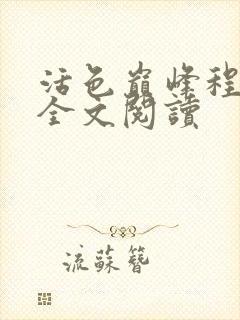 活色巔峰程
全文閱讀
流蘇簪